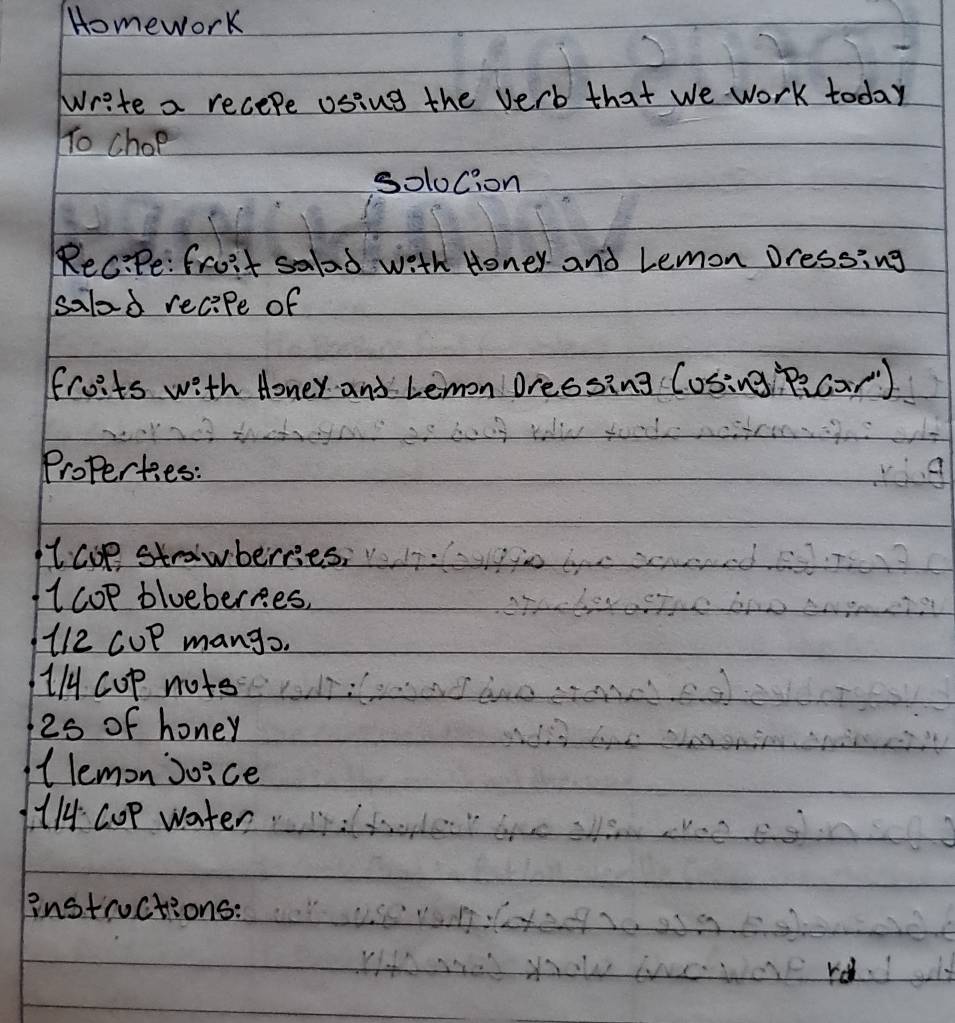 Homework
Write a recepe using the verb that we work today
To chop
Solucion
Recipe: fruit salad with Honey and Lemon Dressing
salad recipe of
fruits with Honey and Lemon Dressing (using "Picar")
Properties:
• 1 cup strawberries.
• 1 cop blueberries.
• 1/2 cup mango.
• 1/4 cup nuts
• 2s of honey
• 1 lemon Juice
• 1/4 cup water
instructions: